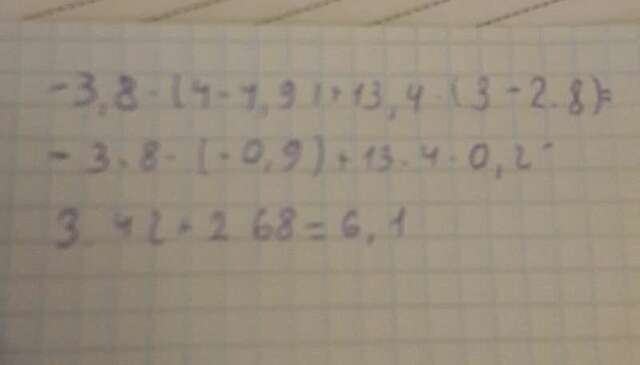 -3,8·(4-4,9)+13,4·(3-2.8)=
-3.8·(-0,9)+13.4·0,2=
3 42+2 68=6,1